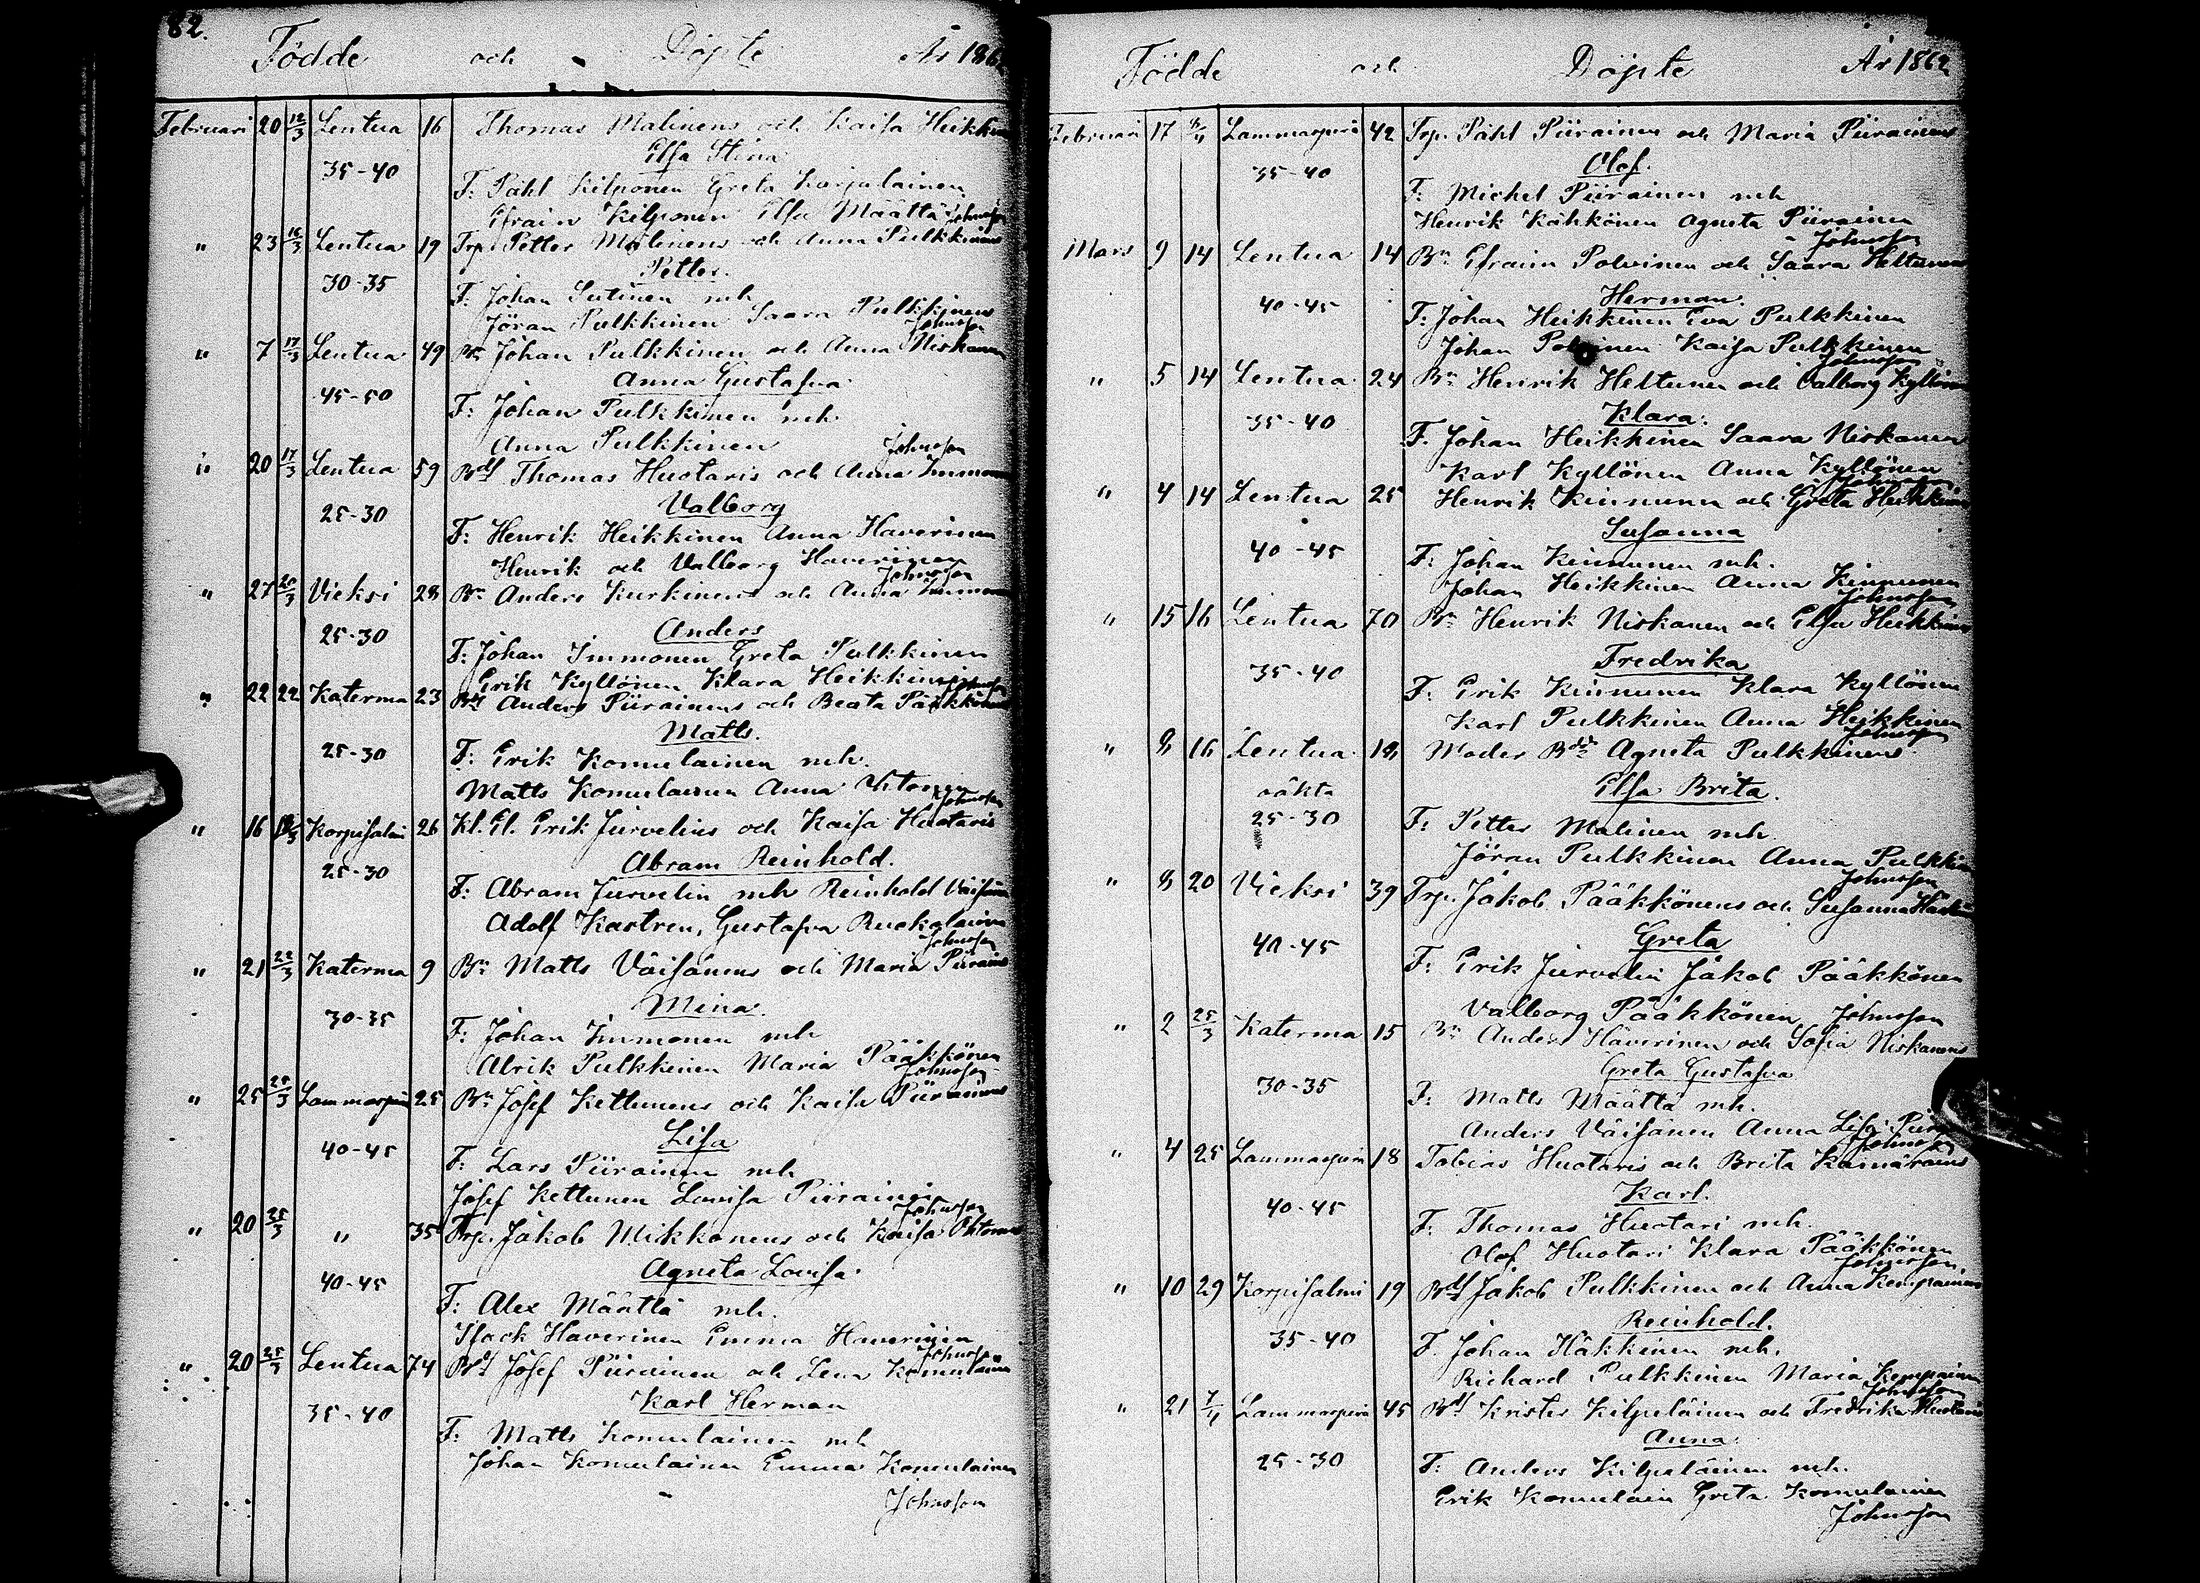 82.
Födde och Döpte År 186
Februari 20 12/3 Lentua 16 Thomas Malinens och Kaisa Heikki
Elsa Stina
35-40
F: Påhl Kilponen Greta Karjalainen
Efraim Kilponen Elsa Määttä Johnsson
" 23 16/3 Lentua 19 Trp. Petter Malinens och Anna Pulkkinens
Petter.
30-35
F: Johan Sutinen mh
Jöran Pulkkinen Saara Pulkkinens
Johnsson
" 7 17/3 Lentua 49 Bn Johan Pulkkinen och Anna Niskanen
Anna Gustafva
45-50
F: Johan Pulkkinen mh.
Anna Pulkkinen Johnsson
" 20 17/3 Lentua 59 Bds Thomas Huotaris och Anna Immonen
Valborg
25-30
F: Henrik Heikkinen Anna Haverinen
Henrik och Valborg Haverinen
Johnsson
" 27 20/3 Vieksi 28 Bn Anders Kurkinens och Anna Immonen
Anders
25-30
F: Johan Immonen Greta Pulkkinen
Erik Kyllönen Klara Heikkinen Johnsson
" 22 22 Katerma 23 Bds Anders Piirainens och Beata Pääkkönens
Matts.
25-30
F: Erik Komulainen mh.
Matts Komulainen Anna
Johnsson
" 16 Korpisalmi 26 Kl. El. Erik Jurvelins och Kaisa Huotaris
Abram Reinhold.
25-30
F: Abram Jurvelin mh Reinhold Väisänen
Adolf Kastren, Gustafva Ruokolainen
Johnsson
" 21 22/3 Katerma 9 Bn Matts Väisänens och Maria Piirains
Mina.
30-35
F: Johan Immonen mh
Alrik Pulkkinen Maria Pääkkönen
Johnsson
" 25 25/3 Lammasperä 25 Bn Josef Kettunens och Kaisa Piirainens
Lisa
40-45
F: Lars Piirainen mh
Josef Kettunen Lovisa Piirainen
Johnsson
" 20 25/3 " 35 Trp. Jakob Mikkonens och Kaisa Ohtonens
Agneta Lovisa.
40-45
F: Alex Määttä mh.
Isack Haverinen Emma Haverinen
Johnsson
" 20 25/3 Lentua 74 Bds Josef Piirainen och Lena Komulainen
Karl Herman
35-40
F: Matts Komulainen mh
Johan Komulainen Emma Komulainen
Johnsson
Födde och Döpte År 1862
Februari 17 Lammasperä 42 Trp. Påhl Piirainen och Maria Piirainens
Olof.
35-40
F: Michel Piirainen mh
Henrik Kähkönen Agneta Piirainen
Johnsson
Mars 9 14 Lentua 14 Bn Efraim Polvinen och Saara Heltunen
Herman.
40-45
F: Johan Heikkinen Eva Pulkkinen
Johan Polvinen Kaisa Pulkkinen
Johnsson
" 5 14 Lentua 24 Bn Henrik Heltunen och Valborg Kyllönen
Klara.
35-40
F: Johan Heikkinen Saara Niskanen
Karl Kyllönen Anna Kyllönen
Johnsson
" 4 14 Lentua 25 Henrik Kinnunen och Greta Heikkinen
Susanna
40-45
F: Johan Kinnunen mh.
Johan Heikkinen Anna Kinnunen
Johnsson
" 15 16 Lentua 70 Bn Henrik Niskanen och Elsa Heikkinen
Fredrika
35-40
F: Erik Kinnunen Klara Kyllönen
Karl Pulkkinen Anna Heikkinen
Johnsson
" 8 16 Lentua 18 Moder Bdr Agneta Pulkkinens
oäkta Elsa Brita.
25-30
F: Petter Malinen mh.
Jöran Pulkkinen Anna Pulkkin
Johnsson
" 8 20 Vieksi 39 Trp. Jakob Pääkkönens och Susanna
Greta
40-45
F: Erik Jurvelin Jakob Pääkkönen
Valborg Pääkkönen Johnsson
" 2 25/3 Katerma 15 Bn Anders Haverinen och Sofia Niskanens
Greta Gustafva
30-35
F: Matts Määttä mh.
Anders Väisänen Anna Lisa
Johnsson
" 4 25 Lammasperä 18 Tobias Huotaris och Brita Kainärains
Karl.
40-45
F: Thomas Huotari mh.
Olof Huotari Klara Pääkkönen
Johnsson.
" 10 29 Korpisalmi 19 Bds Jakob Pulkkinen och Anna Kemppainens
Reinhold.
35-40
F. Johan Häkkinen mh.
Richard Pulkkinen Maria Kemppainen
Johnsson
" 21 7/4 Lammasperä 45 Bds Krister Kilpeläinen och Fredrika Huotaris
Anna.
25-30
F: Anders Kilpeläinen mh.
Erik Komulain Greta Komulainen
Johnsson